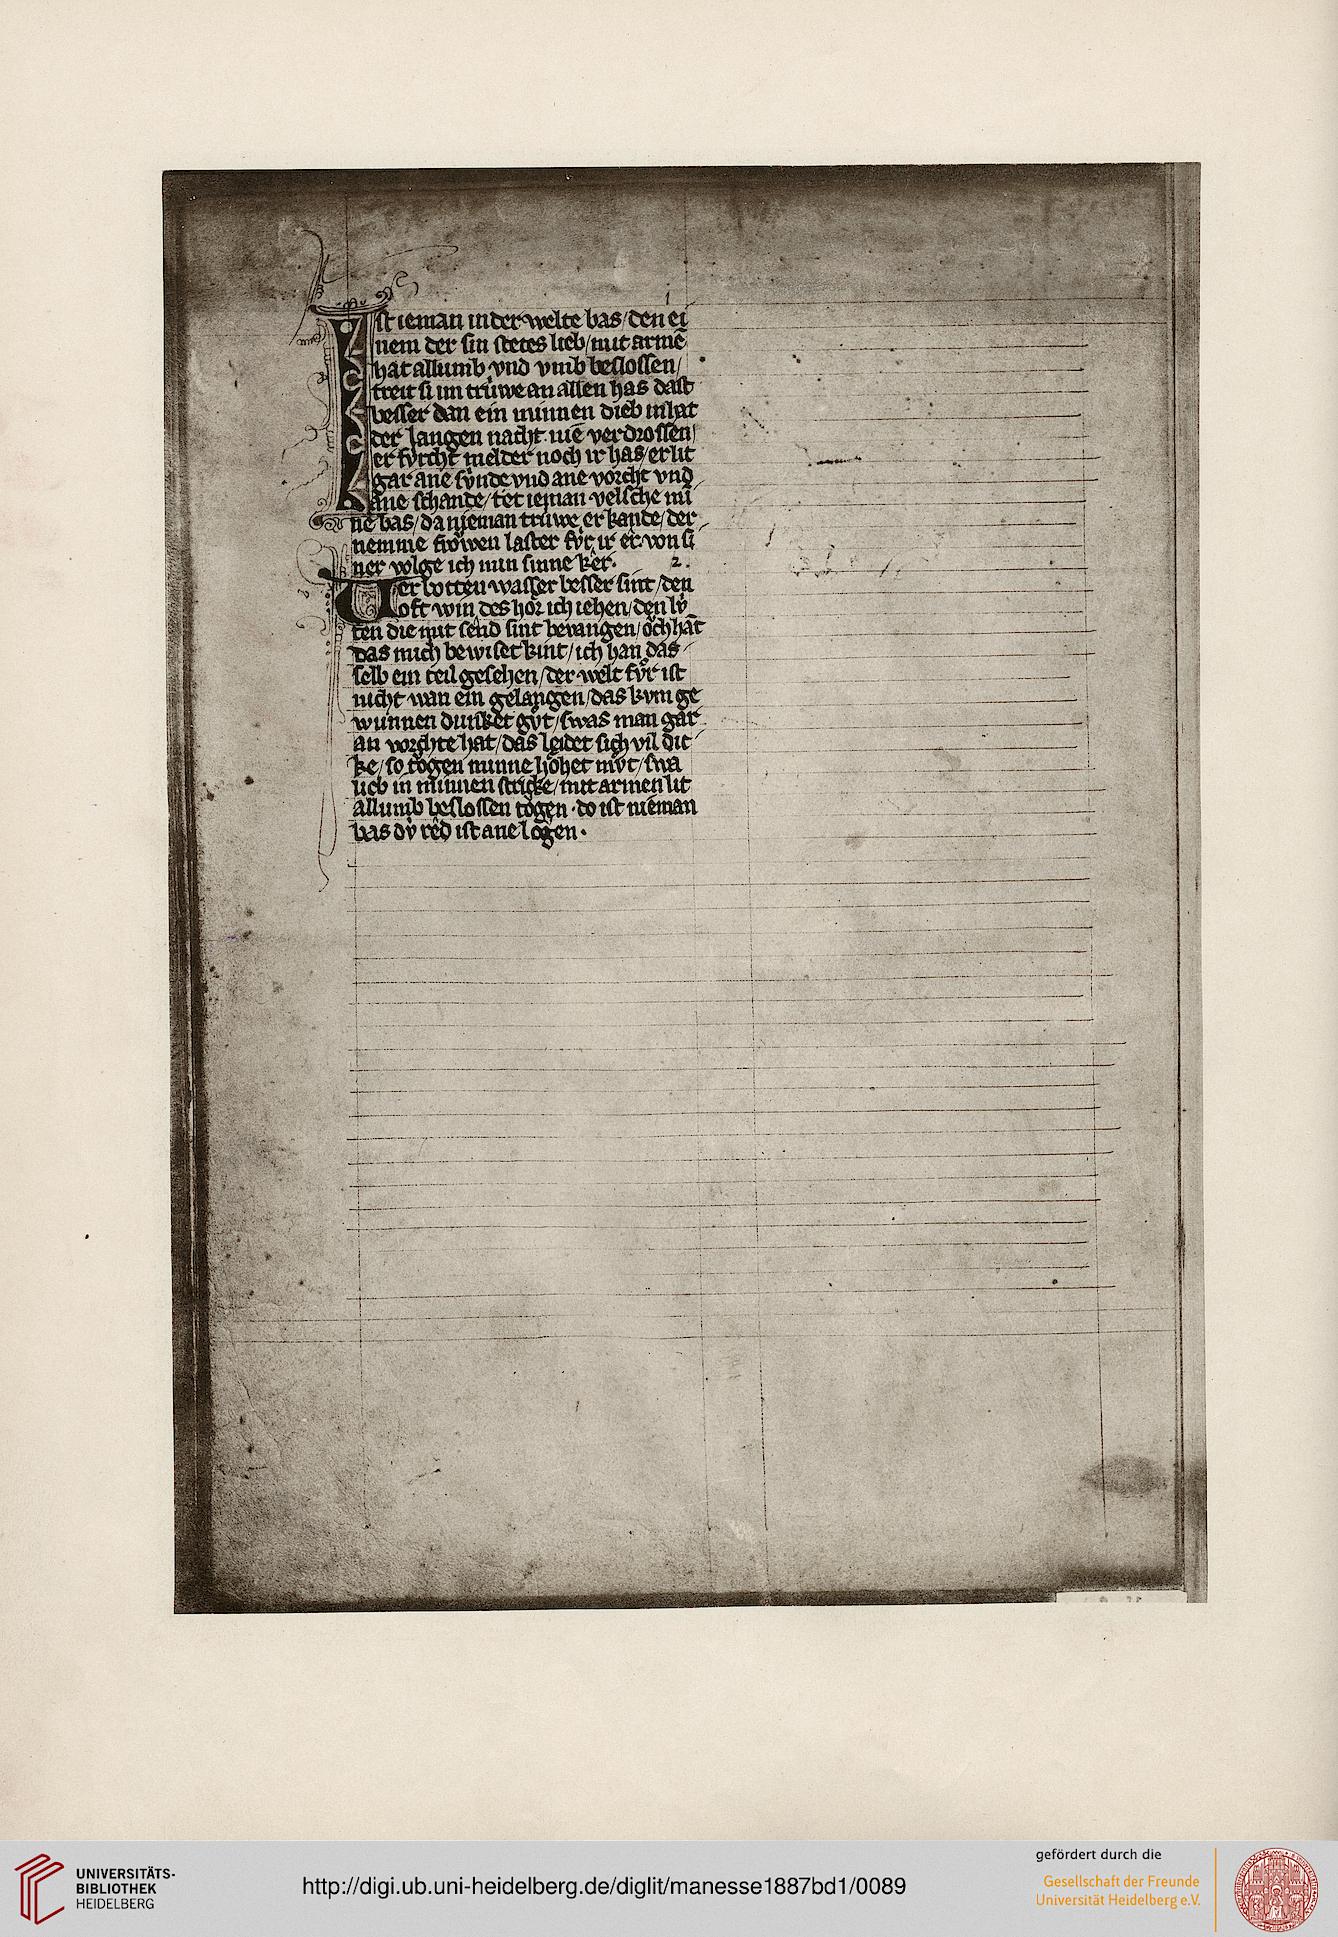 i
Ist ieman in der welte bas / den ei
nem der sin stetes lieb / mit armē
hat allumb vnd vmb beslossen /
treit si im trůwe an allen has dast
besser dan ein minnen dieb in lat
der langen nacht niē verdrossen /
er fv́rcht melder noch ir has / er lit
gar ane sv́nde vnd ane vorcht vnd
ane schande / tet ieman velsche mī
ne bas / da nieman trůwe erkande / der
nemme frǒwen laster fv́r ir er von si
ner volge ich min sinne ker. 2.
Verbotten wasser besser sint / den
oft win des hór ich iehen / den lv́
ten die mit send sint bevangen / ǒch hat
das mich bewiset kint / ich han das
selb ein teil gesehen / der welt fv́r ist
nicht wan ein gelangen / das kvm ge
wunnen dunket gv̊t / swas man gar
an vorchte hat / das leidet sich vil dic
ke / so tǒgen minne hóhet mv̊t / swa
lieb in minnen stricke / mit armen lit
allumb beslossen tǒgen · do ist nieman
bas dv́ red ist ane lǒgen ·
UNIVERSITÄTS-
BIBLIOTHEK
HEIDELBERG
http://digi.ub.uni-heidelberg.de/diglit/manesse1887bd1/0089
gefördert durch die
Gesellschaft der Freunde
Universität Heidelberg e.V.